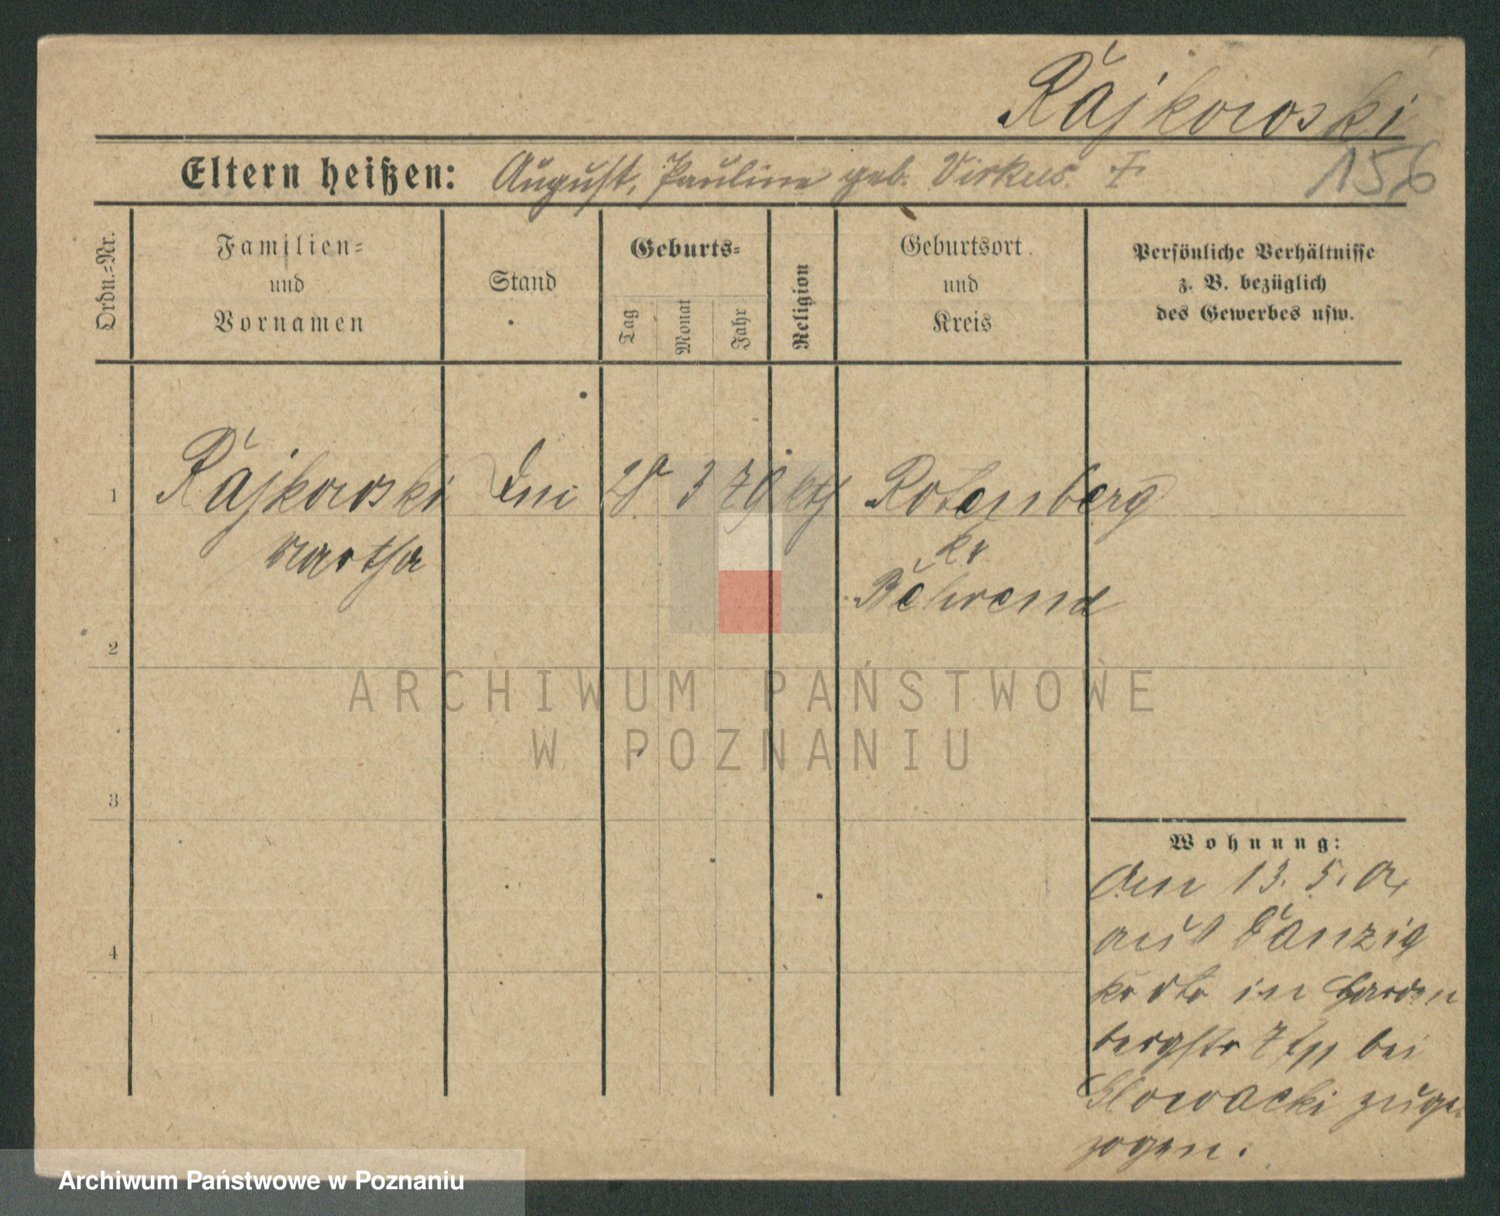 Rajkowski
Eltern heißen: August, Pauline geb. Virkus. †
156
Ordn.=Nr.
Familien=
und
Vornamen
Stand
Geburts=
Tag
Monat
Jahr
Religion
Geburtsort
und
Kreis
Persönliche Verhältnisse
z. B. bezüglich
des Gewerbes usw.
1 Rajkowski 28 3 79 kth Rotenberg
Martha
Kr
Behrend
2
3
4
Wohnung:
Am 13. 5. 04
aus Danzig
in Harden
bergstr 7 bei
Glowacki zuge
zogen.
ARCHIWUM PAŃSTWOWE
W POZNANIU
Archiwum Państwowe w Poznaniu